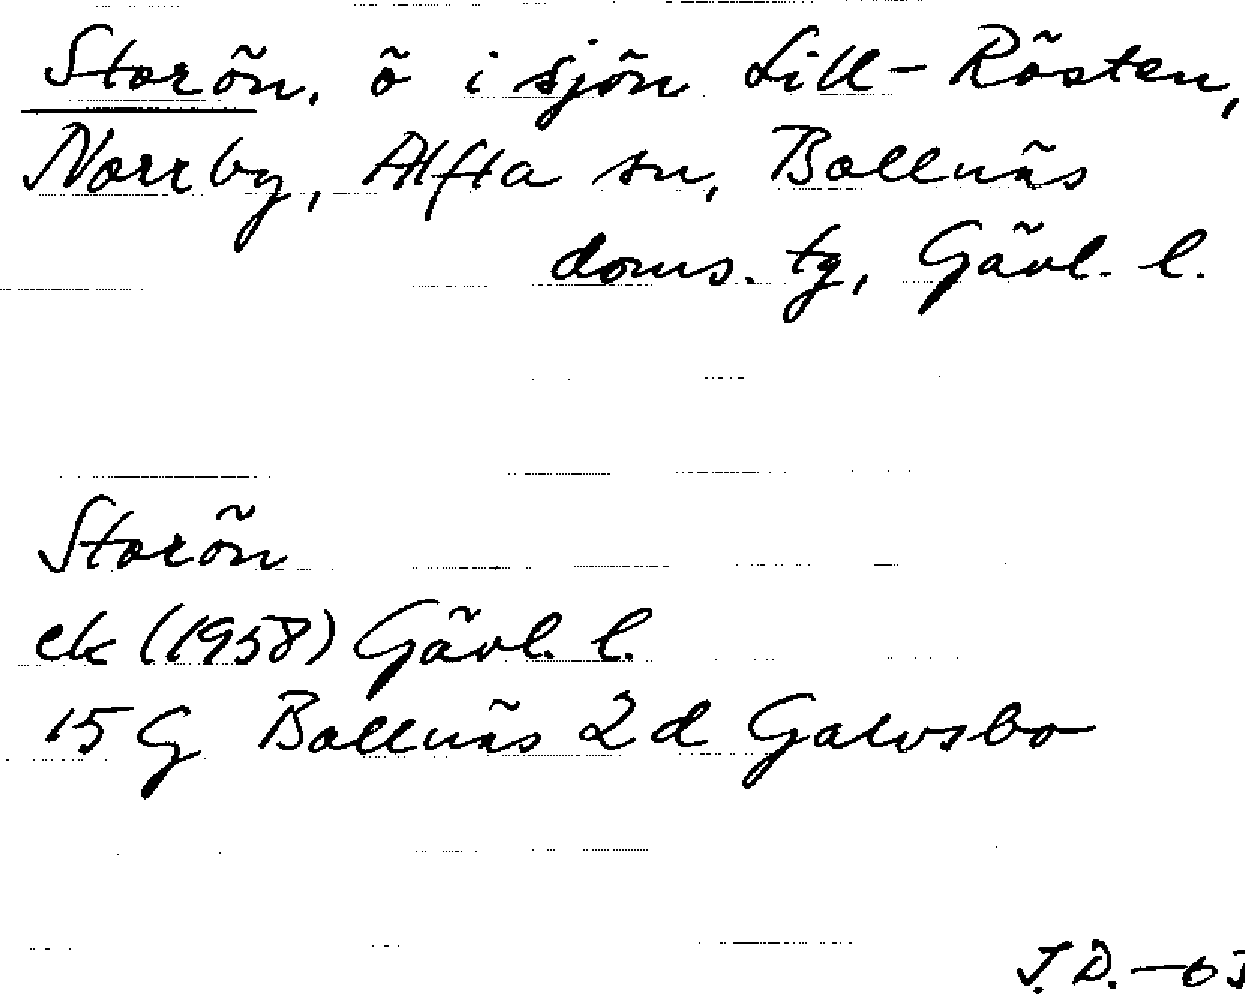 Storön, ö i sjön Lill-Rösten,
Norrby, Alfta sn, Bollnäs
doms. tg, Gävl. l.
Storön
ek (1958) Gävl. l.
15 G Bollnäs 2 d Galvsbo
J. D. -